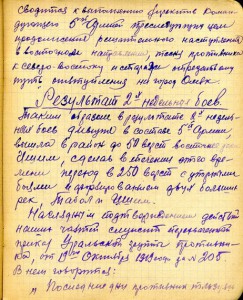 сводится к выполнению директив Коман-
дующего 5ой Армии преследующих цели
продолжения решительного наступления
в восточном направлении, тесня противника
к северо-востоку, и отрезая
путь отступления на город Омск.
Результат 2х недельных боев.
Таким образом в результате 2х недель-
ных боев дивизия в составе 5ой Армии,
вышла в район до 50 верст восточнее реки
Ишим, сделав в течении этого вре-
мени переход в 250 верст с упорными
боями и форсированием двух больших
рек, Тобол и Ишим.
Наглядным подтверждением действий
наших частей служит перехваченный
приказ Уральской группы противни-
ка, от 19го Октября 1919 года № 205.
В нем говорится:
„Последние дни противник